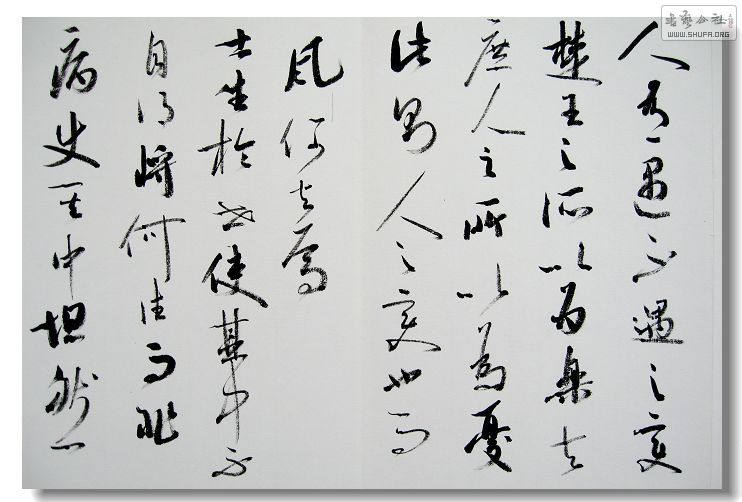 书艺公社
WWW.SHUFA.ORG
人有遇不遇之變
楚王之所以為樂與
庶人之所以為憂
此則人之變也而
風何與焉
士生於世使其中不
自得將何往而非
病使其中坦然